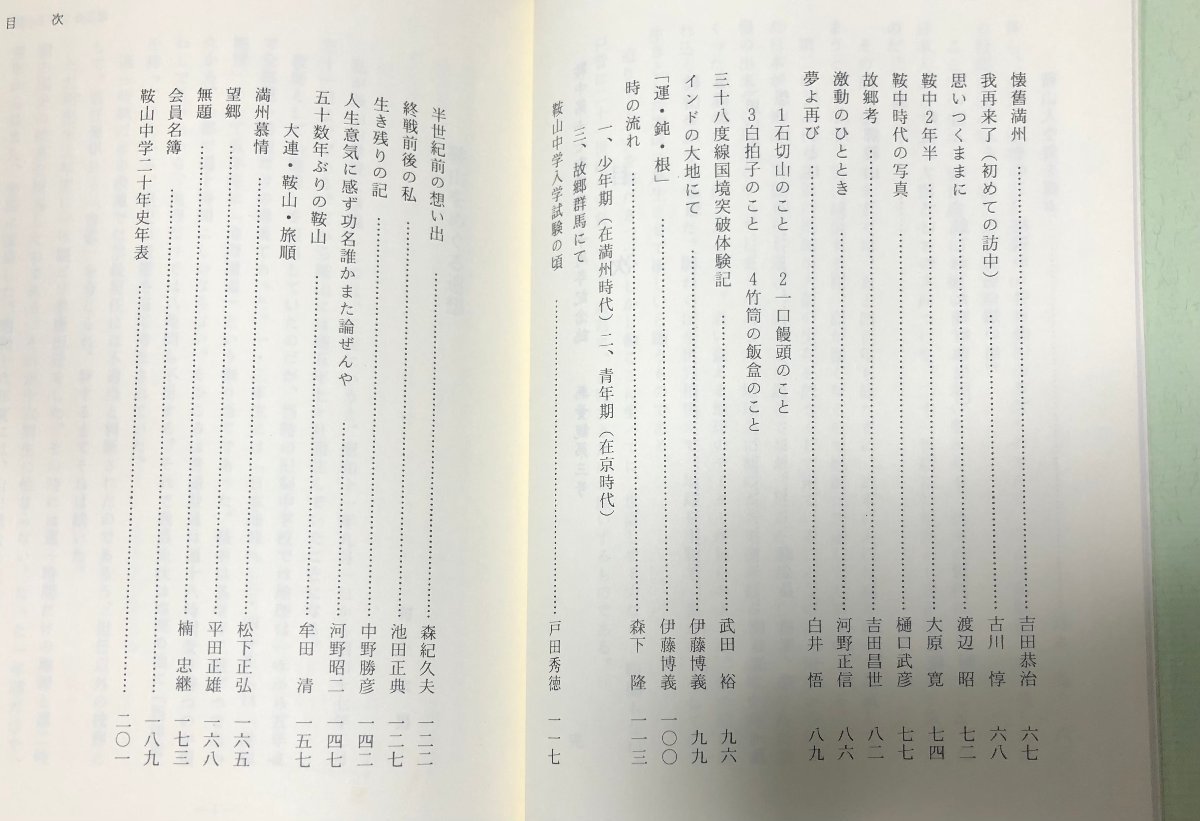 懐舊満州……吉田恭治 六七
我再来了（初めての訪中）……古川 惇 六八
思いつくままに……渡辺 昭 七二
鞍中2年半……大原 寛 七四
鞍中時代の写真……樋口武彦 七七
故郷考……吉田昌世 八二
激動のひととき……河野正信 八六
夢よ再び……白井 悟 八九
1石切山のこと 2一口饅頭のこと
3白拍子のこと 4竹筒の飯盒のこと
三十八度線国境突破体験記……武田 裕 九六
インドの大地にて……伊藤博義 九九
「運・鈍・根」……伊藤博義 一〇〇
時の流れ……森下 隆 一一三
一、少年期（在満州時代）二、青年期（在京時代）
三、故郷群馬にて
鞍山中学入学試験の頃……戸田秀徳 一一七
半世紀前の想い出……森紀久夫 一二二
終戦前後の私……池田正典 一二七
生き残りの記……中野勝彦 一四二
人生意気に感ず功名誰かまた論ぜんや……河野昭二 一四七
五十数年ぶりの鞍山……牟田 清 一五七
大連・鞍山・旅順
満州慕情……松下正弘 一六五
望郷……平田正雄 一六八
無題……楠 忠継 一七三
会員名簿……一八九
鞍山中学二十年史年表……二〇一
目 次